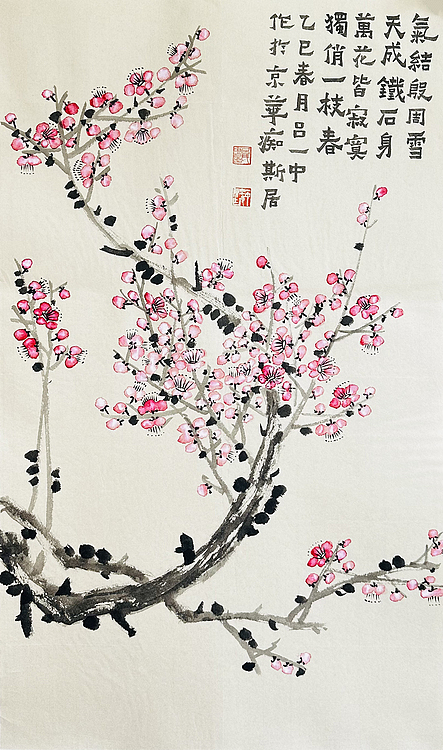 氣結殷周雪
天成鐵石身
萬花皆寂寞
獨俏一枝春
乙巳春月吕一中
作於京華痴斯居